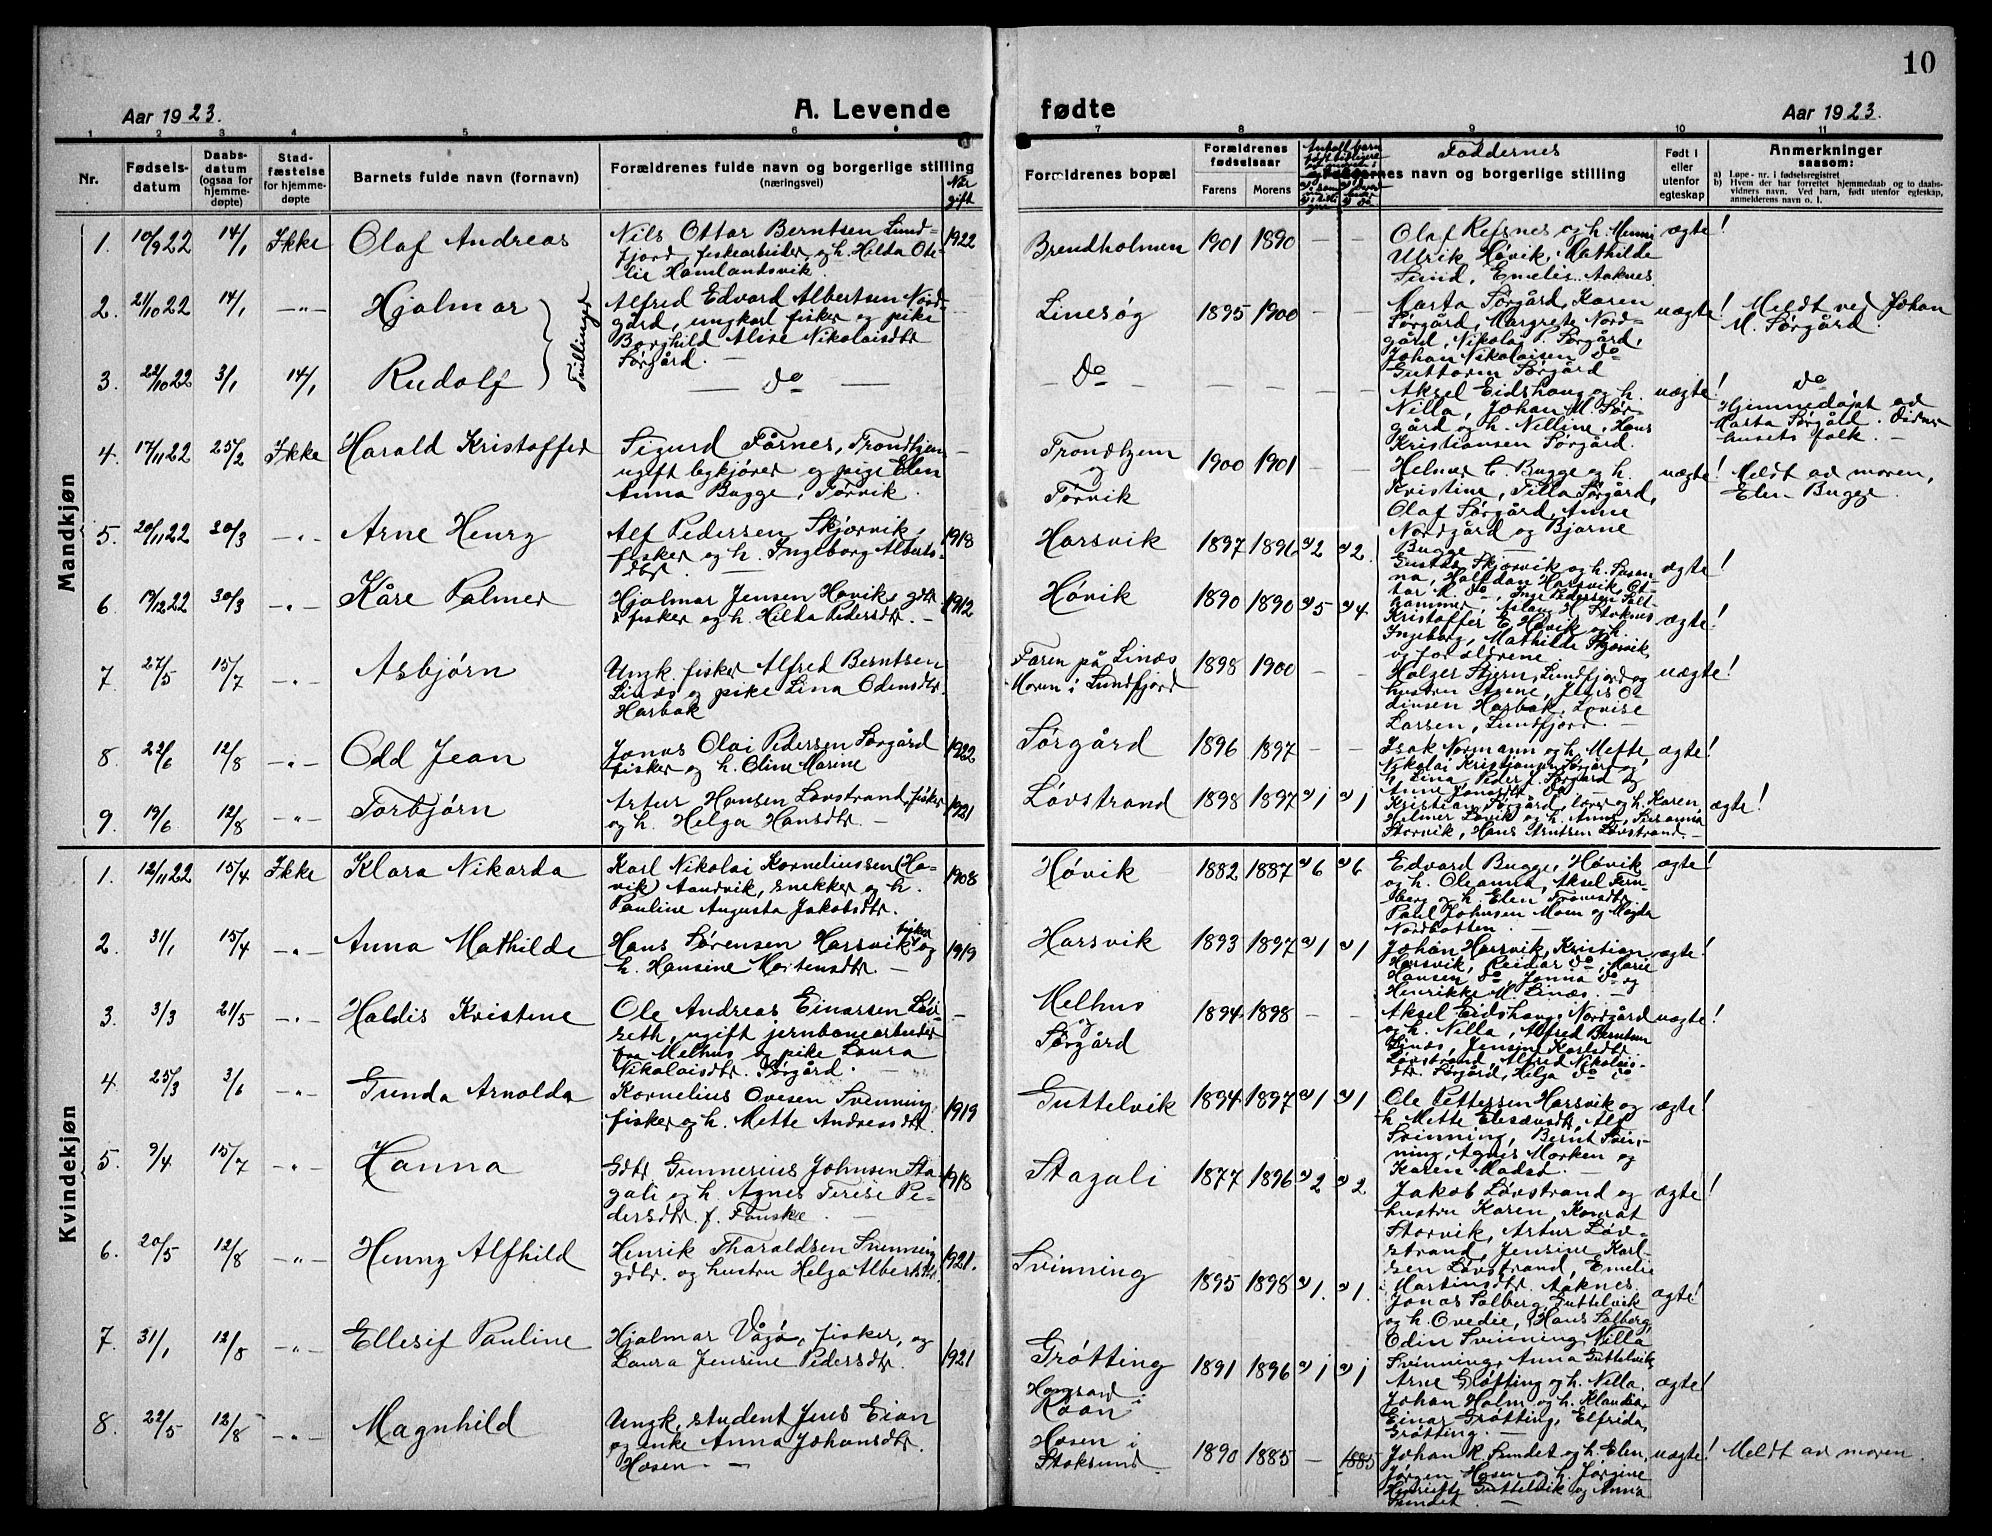 10
Aar 1923.
A. Levende
fødte
Aar 1923.
1 2 3 4 5 6 7 8 9 10 11
Nr.
Fødsels-
datum
Daabs-
datum
(ogsaa for
hjemme-
døpte)
Stad-
fæstelse
for hjemme-
døpte
Barnets fulde navn (fornavn)
Forældrenes fulde navn og borgerlige stilling
(næringsvei)
Når
gift
Forældrenes bopæl
Forældrenes
fødselsaar
Farens
Morens
Faddernes
navn og borgerlige stilling
Født i
eller
utenfor
egteskap
Anmerkninger
saasom:
a) Løpe-nr. i fødselsregistret
b) Hvem der har forrettet hjemmedaab og to daabs-
vidners navn. Ved barn, født utenfor egteskap,
anmelderens navn o. l.
Mandkjøn
1. 10/9 22 14/1 Ikke Olaf Andreas
Nils Ottar Berntsen Lund-
fjord, fiskearbeider og h. Helda Ote-
lie Hamlandsvik.
1922
Brendholmen 1901 1890 — —
Olaf Refsnes og h. Menni
Ulrik Høvik, Mathilde
Sund, Emelie Aaknes
ægte!
2. 21/10 22 14/1 —"— Hjalmar
Trillinger
Alfred Edvard Albertsen Nord-
gård, ungkarl fisker og pike
Borghild Alise Nikolaisdtr
Sørgård. —
Linesøg 1895 1900 — —
Marta Sørgård, Karen
Sørgård, Margrete Nord-
gård, Nikolai P. Sørgård,
Johan Nikolaisen do
Guttorm Sørgård
uægte!
Meldt ved Johan
M. Sørgård.
3. 22/10 22 3/1 14/1 Rudolf
— do —
— do — — — — —
Aksel Eidshaug og h.
Nilla, Johan M. Sør-
gård og h. Nelline, Hans
Kristiansen Sørgård.
uægte!
do
Hjemmedøpt av
Marta Sørgård.
husets folk. —
4. 17/11 22 25/2 Ikke Harald Kristoffer
Sigurd Fårnes, Trondhjem
ugift bykjører og pige Elen
Anna Bugge, Tørvik.
—
Trondhjem
og
Tørvik
1900 1901 — —
Helmer C. Bugge og h.
Kristine, Tilla Sørgård,
Olaf Sørgård, Anne
Nordgård og Bjarne
Bugge —
uægte!
Meldt av moren,
Elen Bugge.
5. 20/11 22 30/3 —"— Arne Henry
Alf Pedersen Skjørvik,
fisker og h. Ingeborg Alberts-
dtr. —
1918
Harsvik 1897 1896 a) 2 a) 2.
Gustav Skjørvik og h. Susan-
na, Halfdan Harsvik, Ot-
tar K. do, Inge Pedersen Salt-
hammer, Aslang H. Stoknes
ægte!
6. 19/12 22 30/3 —"— Kåre Palmer
Hjalmar Jensen Høvik, gdbr
+ fisker og h. Hilda Pedersdtr. —
1912
Høvik 1890 1890 a) 5 a) 4
Kristoffer E. Høvik og h.
Ingeborg, Mathilde Skjørvik
og foreldrene —
ægte!
7. 27/5 15/7 —"— Asbjørn
Ungk. fisker Alfred Berntsen
Linæs og pike Lina Odensdtr.
Harbak
Faren på Linæs
Moren i Lundfjord
1898 1900 — —
Holger Stjern, Lundfjord og
hustru Anne, Jens O-
dinsen Harbak, Lovise
Larsen, Lundfjord. —
uægte!
8. 22/6 12/8 —"— Odd Jean
Jonas Olai Pedersen Sørgård
fisker og h. Oline Marene
1922
Sørgård 1896 1897 — —
Isak Normann og h. Mette
Nikolai Kristiansen Sørgård og
h. Lina, Peder J. Sørgård og
Anne Jonasdtr do —
ægte!
9. 19/6 12/8 —"— Torbjørn
Artur Hansen Løvstrand, fisker
og h. Helga Hansdtr. —
1921
Løvstrand 1898 1897 a) 1 a) 1
Kristian Sørgård, lærer og h. Karen,
Hilmer Løvik og h. Anna, Susanna
Storvik, Hans Arntsen Løvstrand. —
ægte!
Kvindekjøn
1. 12/11 22 15/4 Ikke Klara Nikarda
Karl Nikolai Korneliussen (Hø-
vik) Aandvik, snekker og h.
Pauline Augusta Jakobsdtr.
1908
Høvik 1882 1887 a) 6 a) 6
Edvard Bugge, Høvik
og h. Oleanna, Aksel Fern-
berg og h. Elen Fransdtr
Paul Johnsen Moen og Magda
Nordbotten. —
ægte!
2. 31/1 15/4 —"— Anna Mathilde
Hans Sørensen Harsvik fisker og
h. Hansine Mortensdtr. —
1919
Harsvik 1893 1897 a) 1 a) 1
Johan Harsvik, Kristian
Harsvik, Reidar do, Marie
Hansen do, Janna do og
Henrikke M. Linæs. —
ægte!
3. 3/3 21/5 —"— Haldis Kristine
Ole Andreas Einarsen Løv-
seth, ugift jernbanearbeider
fra Melhus og pike Laura
Nikolaisdtr. Sørgård. —
—
Melhus
og
Sørgård
1894 1898 — —
Aksel Eidshaug, Nordgård
og h. Nilla, Alfred Berntsen
Linæs, Jensine Karlsdtr
Løvstrand, Alfred Nikolais-
dtr. Sørgård, Helga do do
uægte!
4. 25/3 3/6 —"— Gunda Arnolda
Kornelius Ovesen Svenning
fisker og h. Mette Andreasdtr.
1919
Guttelvik 1894 1897 a) 1 a) 1
Ole Pettersen Harsvik og
h. Mette Elesæusdtr, Alf
Svinning, Bernt Svin-
ning, Agnes Morken og
Karen Madsd. —
ægte!
5. 9/4 15/7 —"— Hanna
Gdbr Gunnerius Johnsen Sta-
gali og h. Agnes Terese Pe-
dersdtr. f. Fanske —
1918
Stagali 1877 1896 a) 2 a) 2
Jakob Løvstrand og
hustru Karen, Konrat
Storvik, Artur Løv-
strand, Jensine Karl-
sen Løvstrand, Emelie
Martinsdtr. Aaknes
ægte!
6. 20/5 12/8 —"— Henny Alfhild
Henrik Tharaldsen Svenning
gdbr. og hustru Helga Albertsdtr.
1921.
Svinning 1895 1898 a) 1. a) 1.
Jonas Solberg, Guttelvik
og h. Ovedie, Hans Solberg,
Edin Svinning, Nilla
Svinning, Anna Guttelvik
ægte!
7. 31/1 12/8 —"— Ellesif Pauline
Hjalmar Vågø, fisker, og
Laura Jensine Pedersdtr.
1921
Grøtting 1891 1896 a) 1 a) 1
Arne Grøtting og h. Nilla,
Johan Holm og h. Klaudia,
Einar Grøtting, Elfrida
Grøtting. —
ægte!
8. 22/5 12/8 —"— Magnhild
Ungk. student Jens Eian
og enke Anna Johansdtr.
Hosen —
i
Roan
Hosen i
Stoksund.
1890 1885 — 1885
Johan K. Sundet og h. Elen,
Jørgen Hosen og h. Jørgine
Henriette Guttelvik og Anna
Sundet. —
uægte!
Meldt av moren.